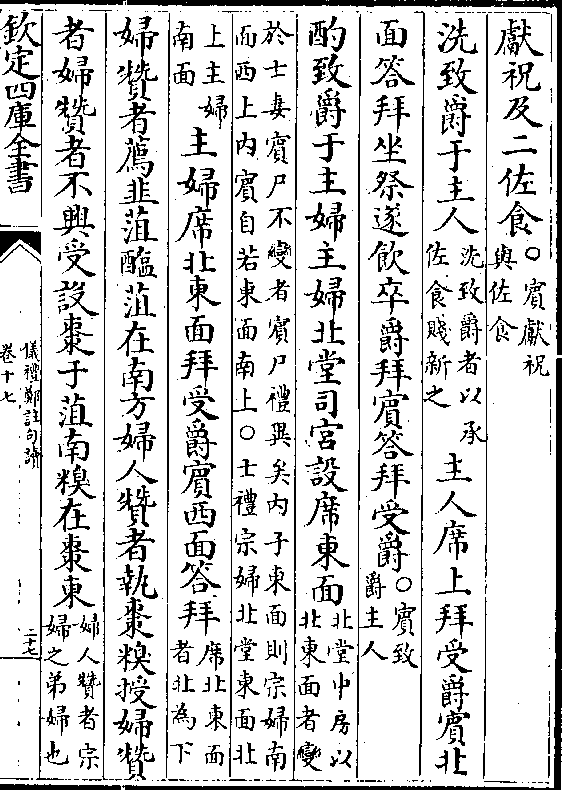 獻祝及二佐食○賓獻祝與佐食
洗致爵于主人洗致爵者以承佐食賤新之主人席上拜受爵賓北
面答拜坐祭遂飲卒爵拜賓答拜受爵○賓致爵主人
酌致爵于主婦主婦北堂司宮設席東面北堂中房以北東面者變
於士妻賓尸不變者賓尸禮異矣内子東面則宗婦南面西上内賓自若東面南上○士禮宗婦北堂東面北
上主婦南面主婦席北東面拜受爵賓西面答拜席北東面者北為下
婦贊者薦韭菹醢菹在南方婦人贊者執棗糗授婦贊
者婦贊者不興受設棗于菹南糗在棗東婦人贊者宗婦之弟婦也
欽定四庫全書
儀禮鄭註句讀
卷十七
二十七